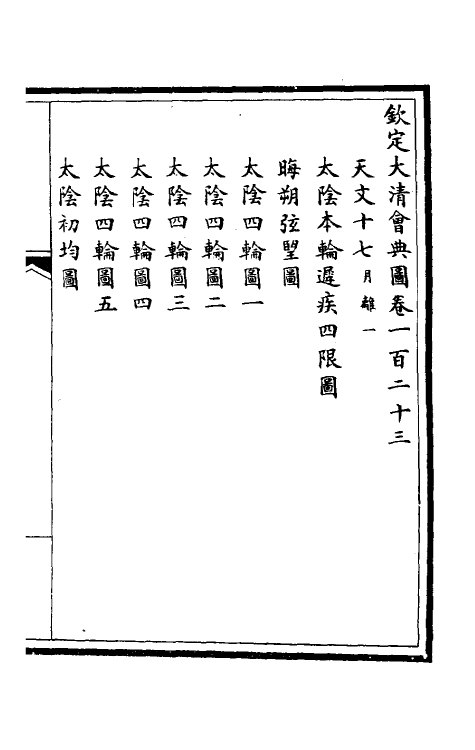 欽定大清會典圖卷一百二十三
天文十七月離一
太陰本輪遲疾四限圖
晦朔弦朢圖
太陰四輪圖一
太陰四輪圖二
太陰四輪圖三
太陰四輪圖四
太陰四輪圖五
太陰初均圖